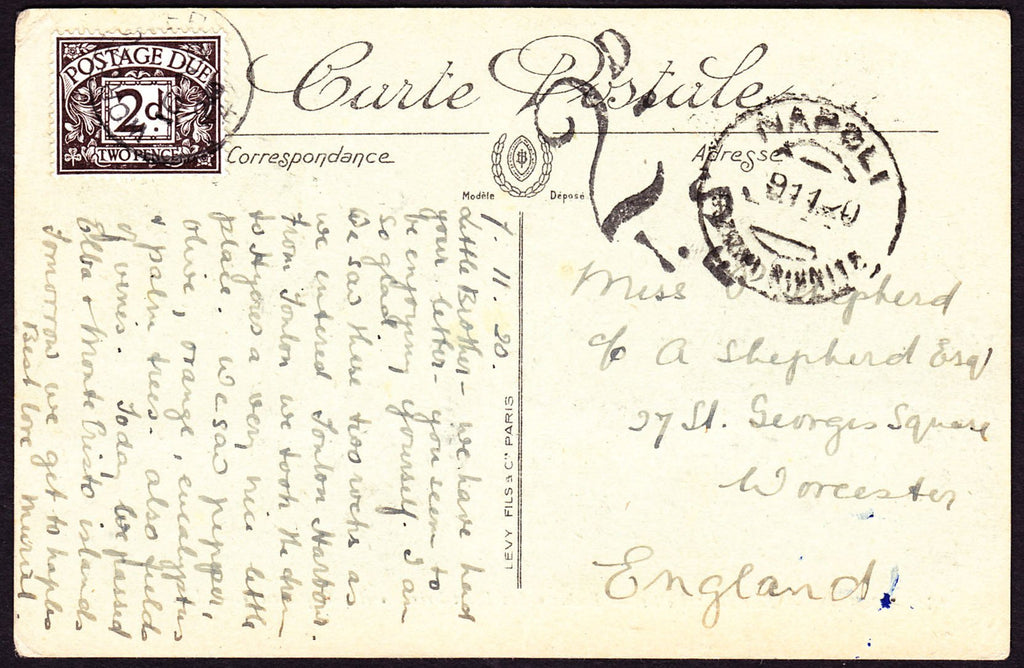 POSTAGE DUE
2d.
TWO PENCE
Carte Postale
Correspondance
Adresse
Modèle Déposé
2D.
NAPOLI
911 20
LEVY FILS & Cie PARIS
7. 11. 20.
Little Brother – we have had
your letter – you seem to
be enjoying yourself. I am
so glad.
We saw these two rocks as
we entered Toulon Harbour.
From Toulon we took the tram
to Hyères a very nice little
place. We saw pepper,
olive, orange, eucalyptus
& palm trees. also fields
of vines. Today we passed
Elba & Monte Cristo islands
Tomorrow we get to Naples
Best love Muriel.
Miss Shepherd
c/o A Shepherd Esq
27 St. Georges Square
Worcester
England